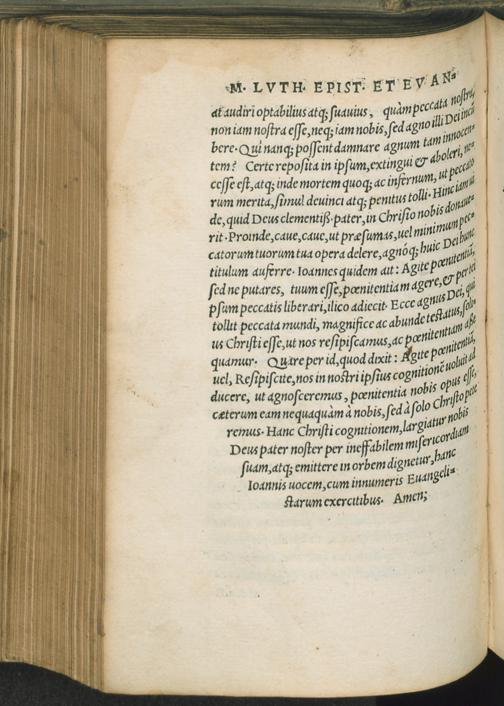 M. LVTH. EPIST. ET EVAN=
at audiri optabilius atq; suauius, quàm peccata nostra,
non iam nostra esse, neq; iam nobis, sed agno illi Dei incū
bere. Qui nanq; possent damnare agnum tam innocen=
tem? Certe reposita in ipsum, extingui & aboleri, ne=
cesse est, atq; inde mortem quoq; ac infernum, ut peccato
rum merita, simul deuinci atq; penitus tolli. Hinc iam ui
de, quid Deus clementiß. pater, in Christo nobis donaue=
rit. Proinde, caue, caue, ut præsumas, uel minimum pec=
catorum tuorum tua opera delere, agnóq; huic Dei hunc
titulum auferre. Ioannes quidem ait: Agite pœnitentiā,
sed ne putares, tuum esse, pœnitentiam agere, & per te i
psum peccatis liberari, ilico adiecit. Ecce agnus Dei, qui
tollit peccata mundi, magnifice ac abunde testatus, soli=
us Christi esse, ut nos resipiscamus, ac pœnitentiam asse
quamur. Quare per id, quod dixit: Agite pœnitentiā,
uel, Resipiscite, nos in nostri ipsius cognitionē uoluit ad
ducere, ut agnosceremus, pœnitentia nobis opus esse,
cæterum eam nequaquàm à nobis, sed à solo Christo pete
remus. Hanc Christi cognitionem, largiatur nobis
Deus pater noster per ineffabilem misericordiam
suam, atq; emittere in orbem dignetur, hanc
Ioannis uocem, cum innumeris Euangeli=
starum exercitibus. Amen;